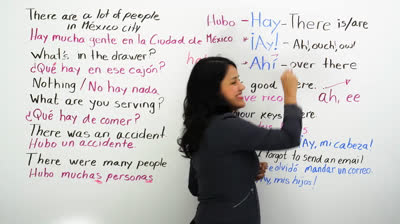 There are a lot of people
in México city
Hay mucha gente en la Ciudad de México
What's in the drawer?
¿Qué hay en ese cajón?
Nothing / No hay nada
What are you serving?
¿Qué hay de comer?
There was an accident
Hubo un accidente
There were many people
Hubo muchas personas
Hubo - Hay - There is/are
¡Ay! - Ah!, ouch!, ow!
Ahí - over there
good
ah, ee
your keys
¡Ay, mi cabeza!
forgot to send an email
olvidó mandar un correo.
¡Ay, mis hijos!